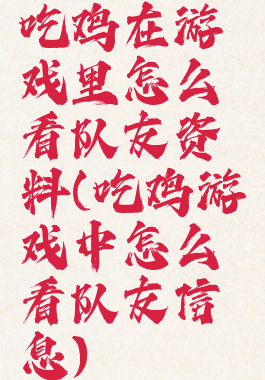 吃鸡在游
戏里怎么
看队友资
料(吃鸡游
戏中怎么
看队友信
息)